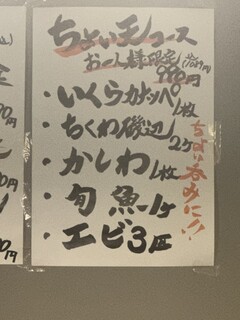 ちょい天コース
お一人様限定
990円
・いくらカナッペ1枚
・ちくわ磯辺2ヶ
・かしわ1枚
・旬魚1ヶ
・エビ3匹
ちょい呑みに!!
円
円